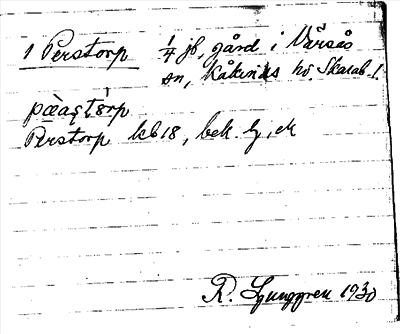 1 Perstorp 1/4 jb, gård i Värsås
sn, Kåkinds hd. Skarab. l.
Perstorp kb 18, bek. hg, ek
R. Ljunggren 1930